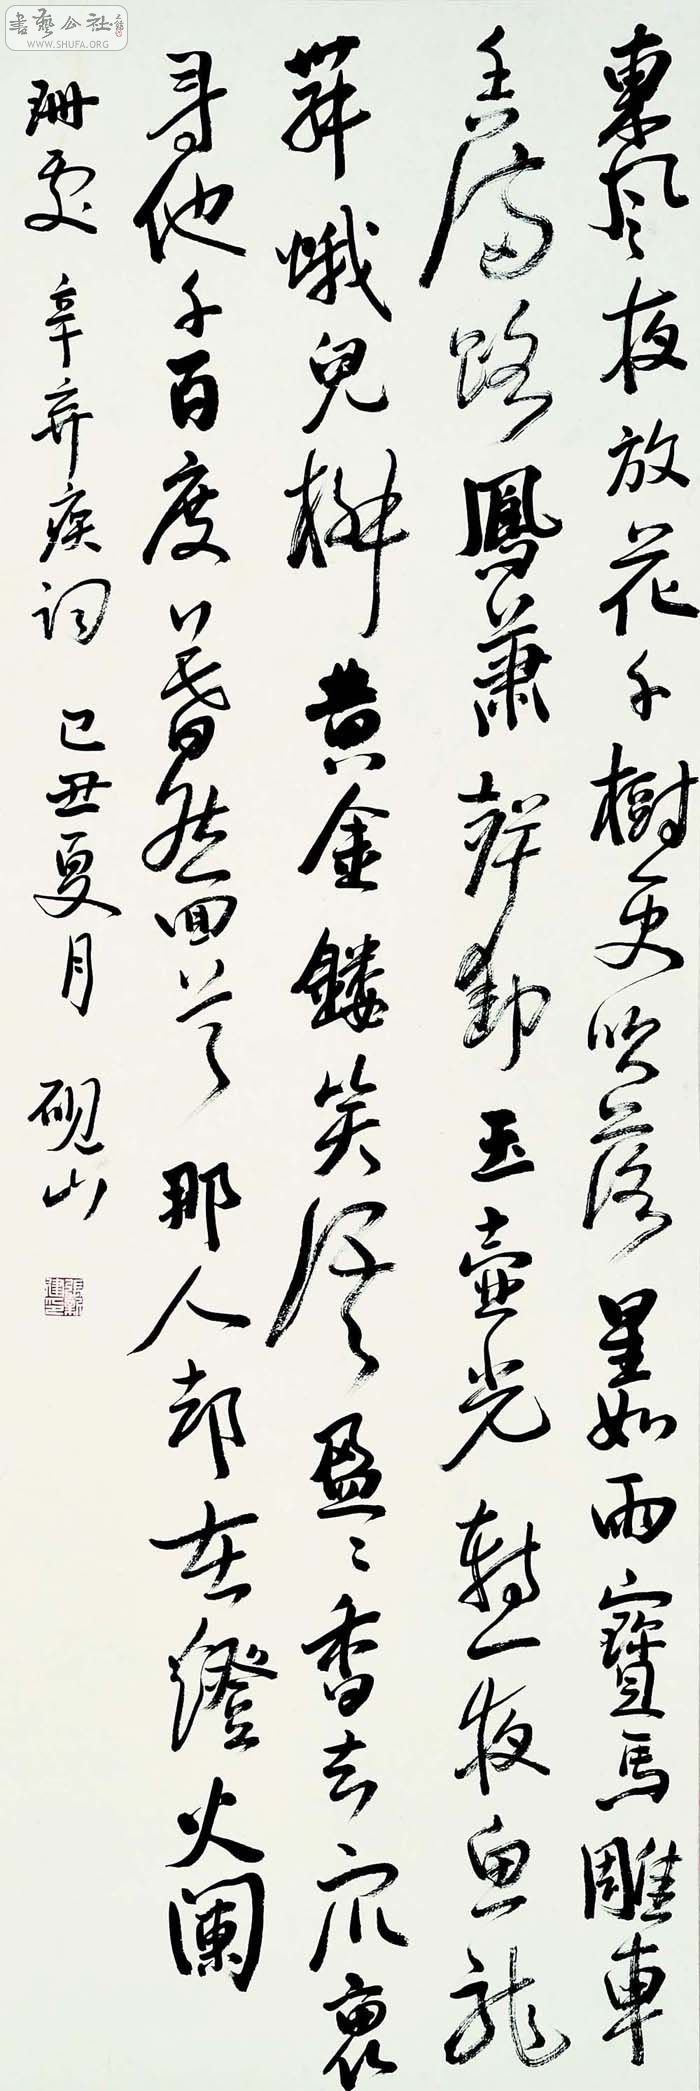 東風夜放花千樹更吹落星如雨寶馬雕車
香滿路鳳蕭聲動玉壺光轉一夜魚龍
舞蛾兒柳黃金鏤笑語盈々香去眾裏
尋他千百度驀然回首那人却在燈火闌
珊處 辛弃疾词 己丑夏月 砚山
書藝公社
WWW.SHUFA.ORG